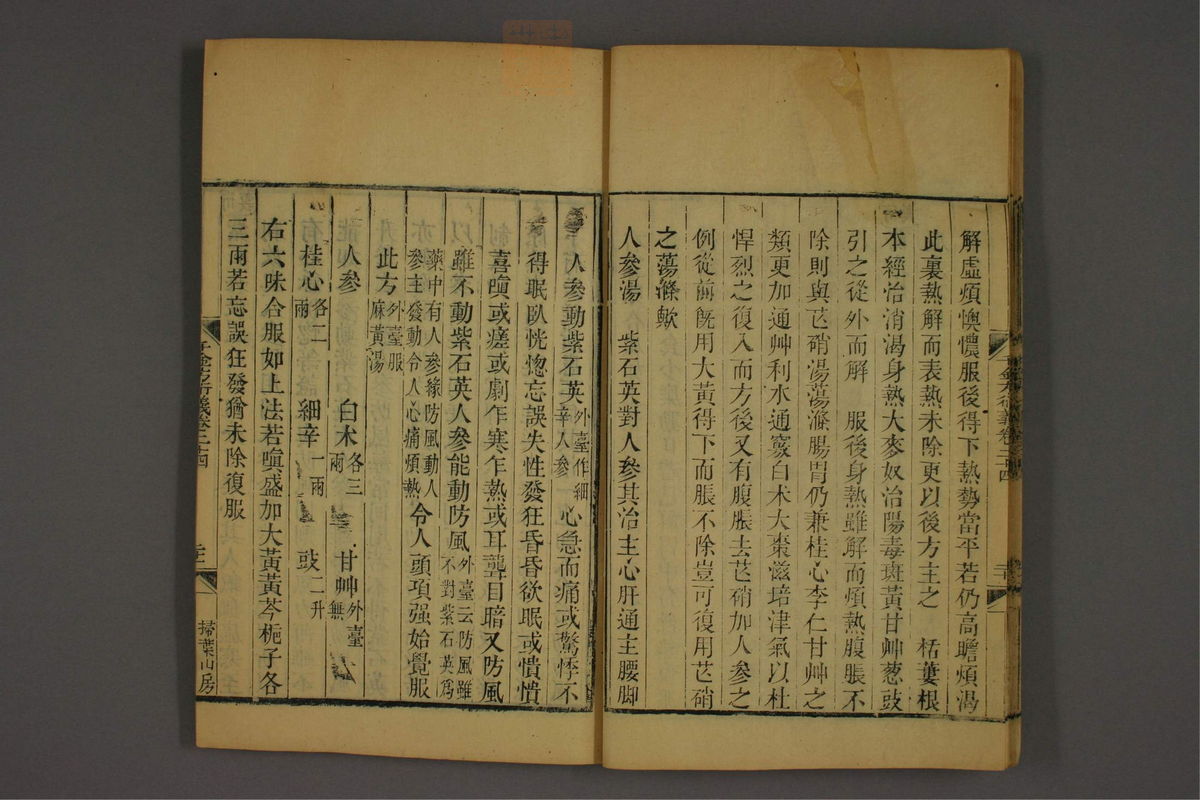 解虛煩懊憹服後得下熱勢當平若仍高瞻煩渴
此裏熱解而表熱未除更以後方主之　栝蔞根
本經治消渴身熱大麥奴治陽毒斑黃甘艸葱豉
引之從外而解　服後身熱雖解而煩熱腹脹不
除則與芒硝湯蕩滌腸胃仍兼桂心李仁甘艸之
類更加通艸利水通竅白术大棗滋培津氣以杜
悍烈之復入而方後又有腹脹去芒硝加人參之
例從前旣用大黃得下而脹不除豈可復用芒硝
之蕩滌歟
人參湯　紫石英對人參其治主心肝通主腰脚
人參動紫石英外臺作細辛人參心急而痛或驚悸不
得眠臥恍惚忘誤失性發狂昏昏欲眠或憒憒
喜嗔或瘥或劇乍寒乍熱或耳聾目暗又防風
雖不動紫石英人參能動防風外臺云防風雖不對紫石英爲
藥中有人參緣防風動人參主發動令人心痛煩熱令人頭項强始覺服
此方外臺服麻黃湯
人參　白术各三兩　甘艸外臺無
桂心各二兩　細辛一兩　豉二升
右六味合服如上法若嗔盛加大黃黃芩梔子各
三兩若忘誤狂發猶未除復服
掃葉山房